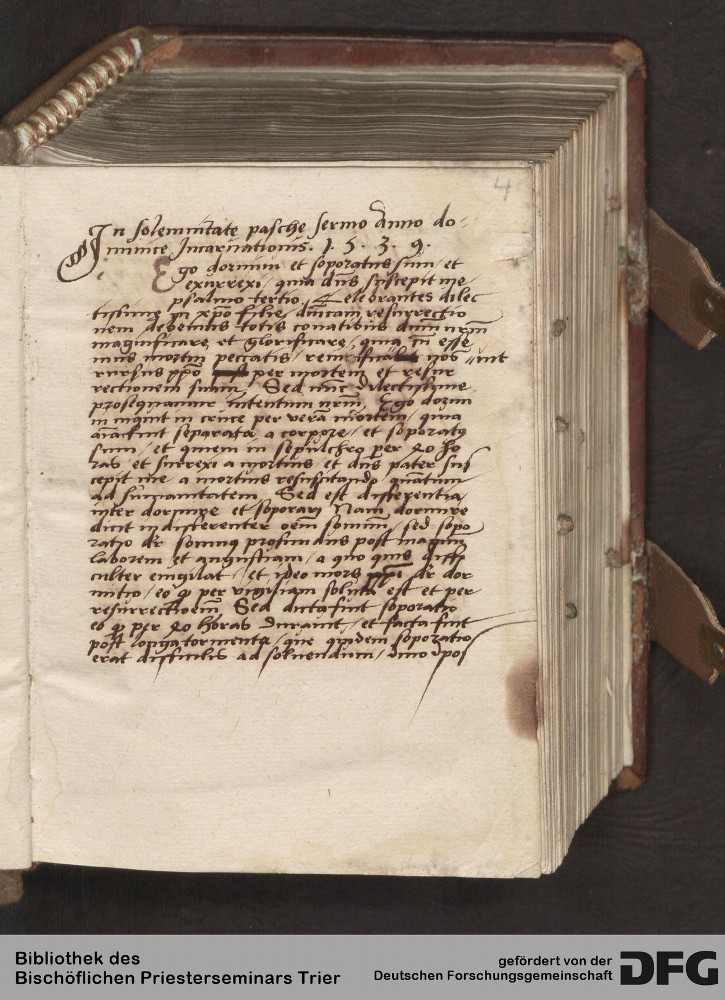 4
In solemnitate pasche sermo Anno do-
minice Incarnationis. 1. 5. 3. 9.
Ego dormivi et soporatus sum, et
exurrexi, quia dns suscepit me
psalmo tertio. Celebrantes dilec
tissime in xpo filie, dnicam resurrectio
nem debemus totis conatibus dnm nrm
magnificare et glorificare, quia cu esse
mus mortui peccatis, nos
rursus xpo per mortem et resur
rectionem suam. Sed nunc dilectissime
prosequamur intentum nrm, Ego dormi
vi inquit in cruce per verā mortem, quia
separata a corpore, et soporatus
sum, et quievi in sepulchro per 40 ho
ras, et surrexi a mortuis, et dns pater sus
cepit me a mortuis resuscitando quantum
ad humanitatem. Sed est differentia
inter dormire et soporari Nam dormire
dicit indifferenter oēm somnū, sed sopo
ratio dr somnus profundus post magnū
laborem et angustiam, a quo quis diffi
culter evigilat, et ideo mors dr dor
mitio, eo q per vigiliam soluta est et per
resurrectioem, Sed dicta fuit soporatio
eo q per 40 horas duravit, et facta fuit
post longa tormenta, que quidem soporatio
erat difficilis ad solvendum,
Bibliothek des
Bischöflichen Priesterseminars Trier
gefördert von der
Deutschen Forschungsgemeinschaft
DFG